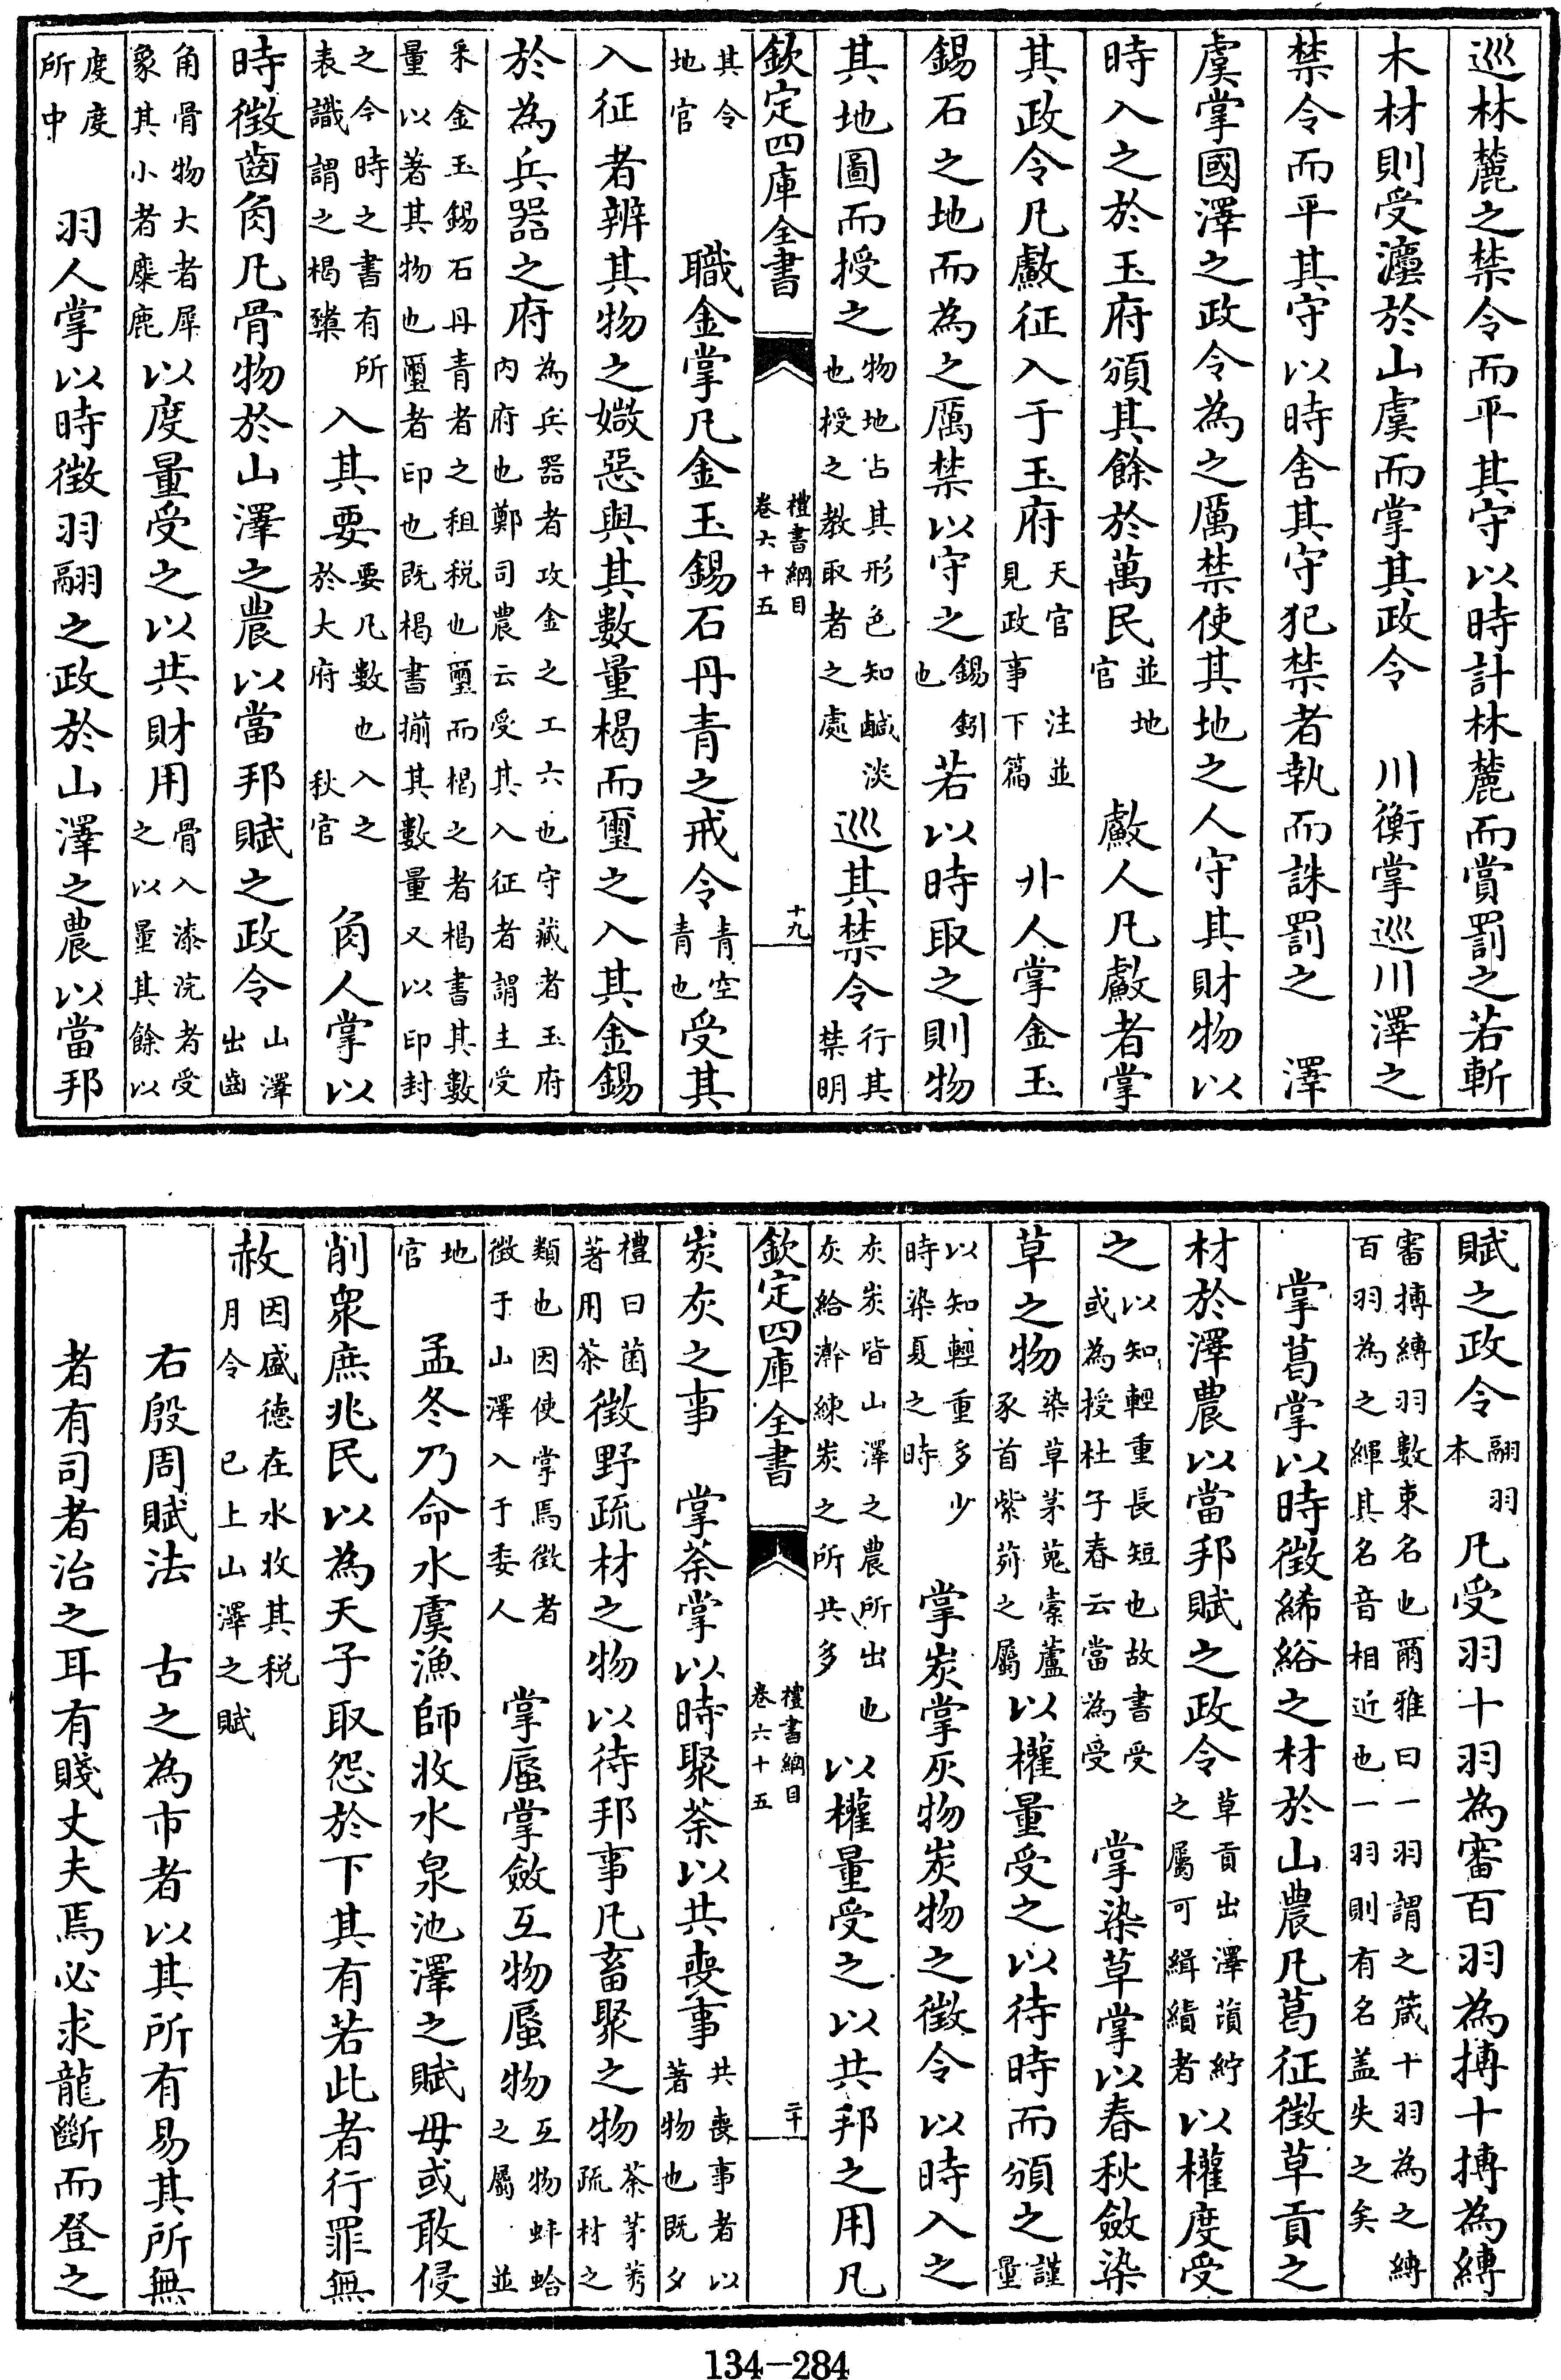 巡林麓之禁令而平其守以時計林麓而賞罰之若斬
木材則受灋於山虞而掌其政令　川衡掌巡川澤之
禁令而平其守以時舍其守犯禁者執而誅罰之　澤
虞掌國澤之政令為之厲禁使其地之人守其財物以
時入之於玉府頒其餘於萬民並地官　䱷人凡䱷者掌
其政令凡䱷征入于玉府天官　注並見政事下篇　丱人掌金玉
錫石之地而為之厲禁以守之錫鈏也若以時取之則物
其地圖而授之物地占其形色知鹹淡也授之教取者之處巡其禁令行其禁明
欽定四庫全書　禮書綱目卷六十五　十九
其令地官　職金掌凡金玉錫石丹青之戒令青空青也受其
入征者辨其物之媺惡與其數量楬而璽之入其金錫
於為兵器之府為兵器者攻金之工六也守藏者玉府內府也鄭司農云受其入征者謂主受
采金玉錫石丹青者之租税也璽而楬之者楬書其數量以著其物也璽者印也既楬書揃其數量又以印封
之今時之書有所表識謂之楬櫫入其要要凡數也入之於大府　秋官　角人掌以
時徵齒角凡骨物於山澤之農以當邦賦之政令山澤出齒
角骨物大者犀象其小者麋鹿以度量受之以共財用骨入漆浣者受之以量其餘以
度度所中　羽人掌以時徵羽翮之政於山澤之農以當邦
賦之政令翮羽本凡受羽十羽為審百羽為摶十摶為縳
審摶縳羽數束名也爾雅曰一羽謂之箴十羽為之縳百羽為之緷其名音相近也一羽則有名盖失之矣
掌葛掌以時徵絺綌之材於山農凡葛征徵草貢之
材於澤農以當邦賦之政令草貢出澤萯紵之屬可緝績者以權度受
之以知輕重長短也故書受或為授杜子春云當為受　掌染草掌以春秋斂染
草之物染草茅蒐橐蘆豕首紫茢之屬以權量受之以待時而頒之謹量
以知輕重多少時染夏之時　掌炭掌灰物炭物之徵令以時入之
灰炭皆山澤之農所出也灰給澣練炭之所共多以權量受之以共邦之用凡
欽定四庫全書　禮書綱目卷六十五　二十
炭灰之事　掌荼掌以時聚荼以共喪事共喪事者以著物也既夕
禮曰茵著用荼徵野疏材之物以待邦事凡畜聚之物荼茅莠疏材之
類也因使掌焉徵者徵于山澤入于委人　掌蜃掌斂互物蜃物互物蚌蛤之屬　並
地官　孟冬乃命水虞漁師收水泉池澤之賦毋或敢侵
削衆庶兆民以為天子取怨於下其有若此者行罪無
赦因盛德在水收其税月令　已上山澤之賦
右殷周賦法　古之為市者以其所有易其所無
者有司者治之耳有賤丈夫焉必求龍斷而登之
134-284